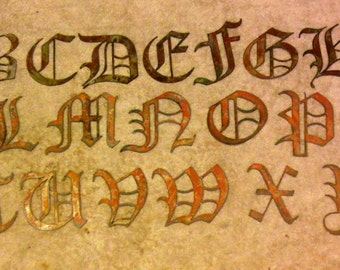 B C D E F G H
L M N O P
U V W X Y